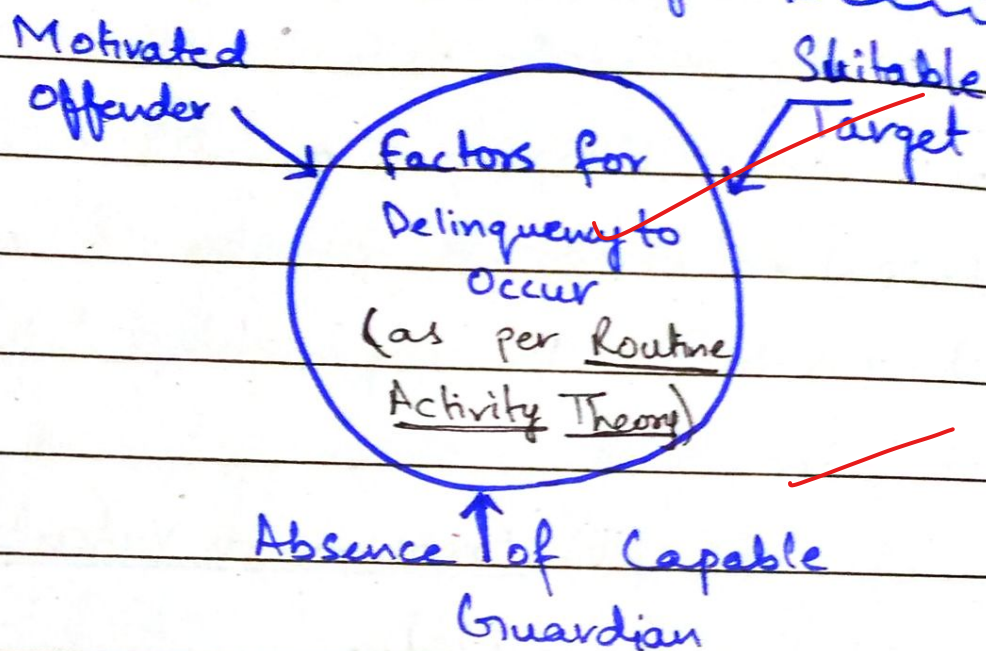 Motivated
Offender
Suitable
Target
Factors for
Delinquency to
Occur
(as per Routine
Activity Theory)
Absence of Capable
Guardian